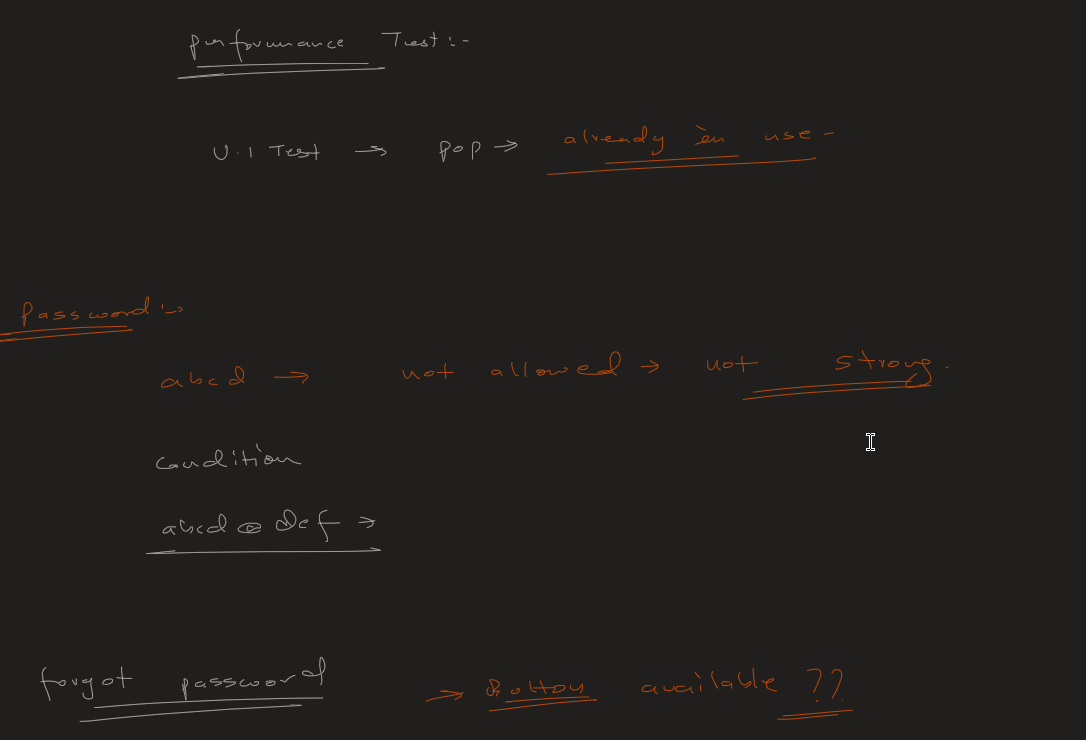 performance Test:-
U.I Test → pop → already in use -
Password :→
abcd → not allowed → not strong.
condition
abcd@Def →
forgot password → Button available ??